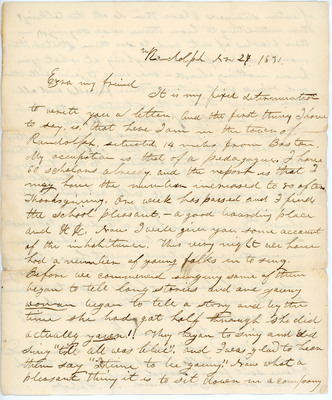 Randolph Nov 27 1831.
Ezra my friend
It is my fixed determination
to write you a letter, and the first thing I have
to say, is, that here I am in the town of
Randolph, situated 14 miles from Boston.
My occupation is that of a pedagogue. I have
60 scholars already and the report is that I
may have the number increased to 80 after
Thanksgiving. One week has passed and I find
the school pleasant, - a good boarding place
and Now I will give you some account
of the inhabitants. This very night we have
had a number of young folks in to sing.
Before we commenced singing some of them
began to tell long stories and one young
woman began to tell a story and by the
time she had got half through she did
actually yawn!! They began to sing and
sung "till all was blue". and I was glad to hear
them say "time to be going." Now what a
pleasant thing it is to sit down in a company